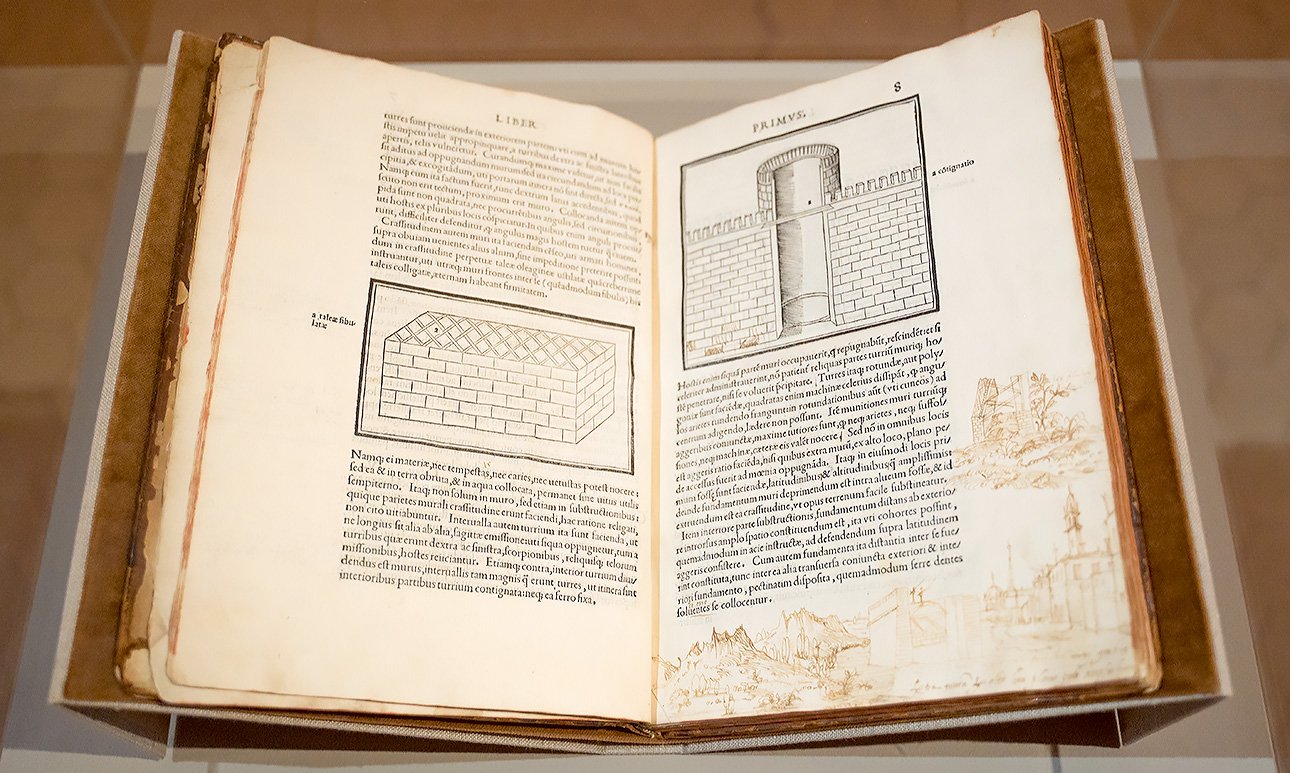 LIBER
turres sunt proiiciendæ in exteriorem partem: uti cum ad murum hos
stis impetu uelit appropinquare, a turribus dextra ac sinistra lateribus
apertis, telis vulneretur. Curandumq; maxime videtur, ut non facilis
sit aditus ad oppugnandum murum sed ita circundandum ad loca præ
cipitia, & excogitádum, uti portarum itinera nó sint directa, sed
Namq; cum ita factum fuerit, tunc dextrum latus accedentibus, quod
scuto non erit tectum, proximum erit muro. Collocanda autem oppi
pida sunt non quadrata, nec procurrétibus angulis, sed circuitionibus,
uti hostis ex pluribus locis cóspiciatur. In quibus enim anguli procur
runt, difficiliter defenditur, q̃ angulus magis hostem tuetur q̃ ciuem.
Crassitudinem autem muri ita faciendam céseo, uti armati homines
supra obuiam uenientes alius alium, sine impeditione preterire possint,
dum in crassitudine perpetuæ taleæ oleagineæ ustilatæ quá creberrime
instruantur, uti utræq; muri frontes inter se (quéadmodum fibulis) his
taleis colligatæ, æternam habeant firmitatem.
a taleæ fibu
latæ
a
Namq; ei materiæ, nec tempestas, nec caries, nec uetustas potest nocere:
sed ea & in terra obruta, & in aqua collocata, permanet sine uitiis utilis
sempiterno. Itaq; non solum in muro, sed etiam in substructionibus:
quique parietes murali crassitudine erunt faciendi, hac ratione religati,
non cito uitiabuntur. Interualla autem turrium ita sunt facienda, ut
ne longius sit alia ab alia, sagittæ emissione: uti siqua oppugnetur, tum a
turribus quæ erunt dextra ac sinistra, scorpionibus, reliquisq; telorum
missionibus, hostes reiiciantur. Etiamq; contra, interior turrium diui
dendus est murus, interuallis tam magnis q̃ erunt turres, ut itinera sint
interioribus partibus turrium contignata: neq; ea ferro fixa,
PRIMVS. 8
a cótignatio
a
Hostis enim siquá parté muri occupauerit, q̃ repugnabút, rescindét: et si
celeriter administrauerint, nó patient reliquas partes turriũ muriq; ho/
sté penetrare, nisi se voluerit p̃cipitare. Turres itaq; rotundæ, aut poly/
goniæ sunt faciédæ, quadratas enim machinæ celerius dissipát, q̃ angu/
los arietes tundendo frangunt: in rotundationibus aũt (vti cuneos) ad
centrum adigendo, lædere non possunt. Ité munitiones muri turriũq;
aggeribus coniunctæ, maxime tutiores sunt, q̃ neq; arietes, neq; suffos/
siones, neq; machinæ, cæteræ eis valét nocere. Sed nó in omnibus locis
est aggeris ratio faciéda, nisi quibus extra murũ, ex alto loco, plano pe/
de accessus fuerit ad mœnia oppugnáda. Itaq; in eiusmodi locis pri/
mũ fossę sunt faciendæ, latitudinibus & altitudinibusq̃ amplissimis:
deinde fundamentum muri deprimendum est intra alueum fossæ, & id
extruendum est ea crassitudine, vt opus terrenum facile substineatur.
Item interiore parte substructionis, fundamentum distans ab exterio/
re introrsus amplo spatio constituendum est, ita vti cohortes possint,
quemadmodum in acie instructæ, ad defendendum supra latitudinem
aggeris consistere. Cum autem fundamenta ita distantia inter se fue/
rint constituta, tunc inter ea alia transuersa coniuncta exteriori & inte/
riori fundamento, pectinatim disposita, quemadmodum serre dentes
soluentes se collocentur.